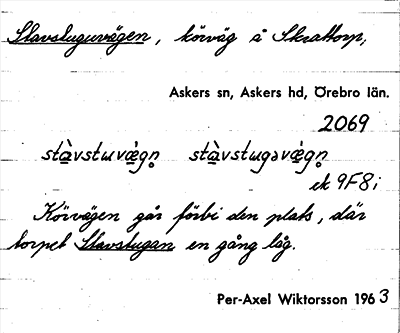 Slavstuguvägen, körväg å Skrattorp,
Askers sn, Askers hd, Örebro län.
2069
stàvstuvǽgn̥ stàvstugəvǽgn̥
ek 9F8i
Körvägen går förbi den plats, där
torpet Slavstugan en gång låg.
Per-Axel Wiktorsson 1963